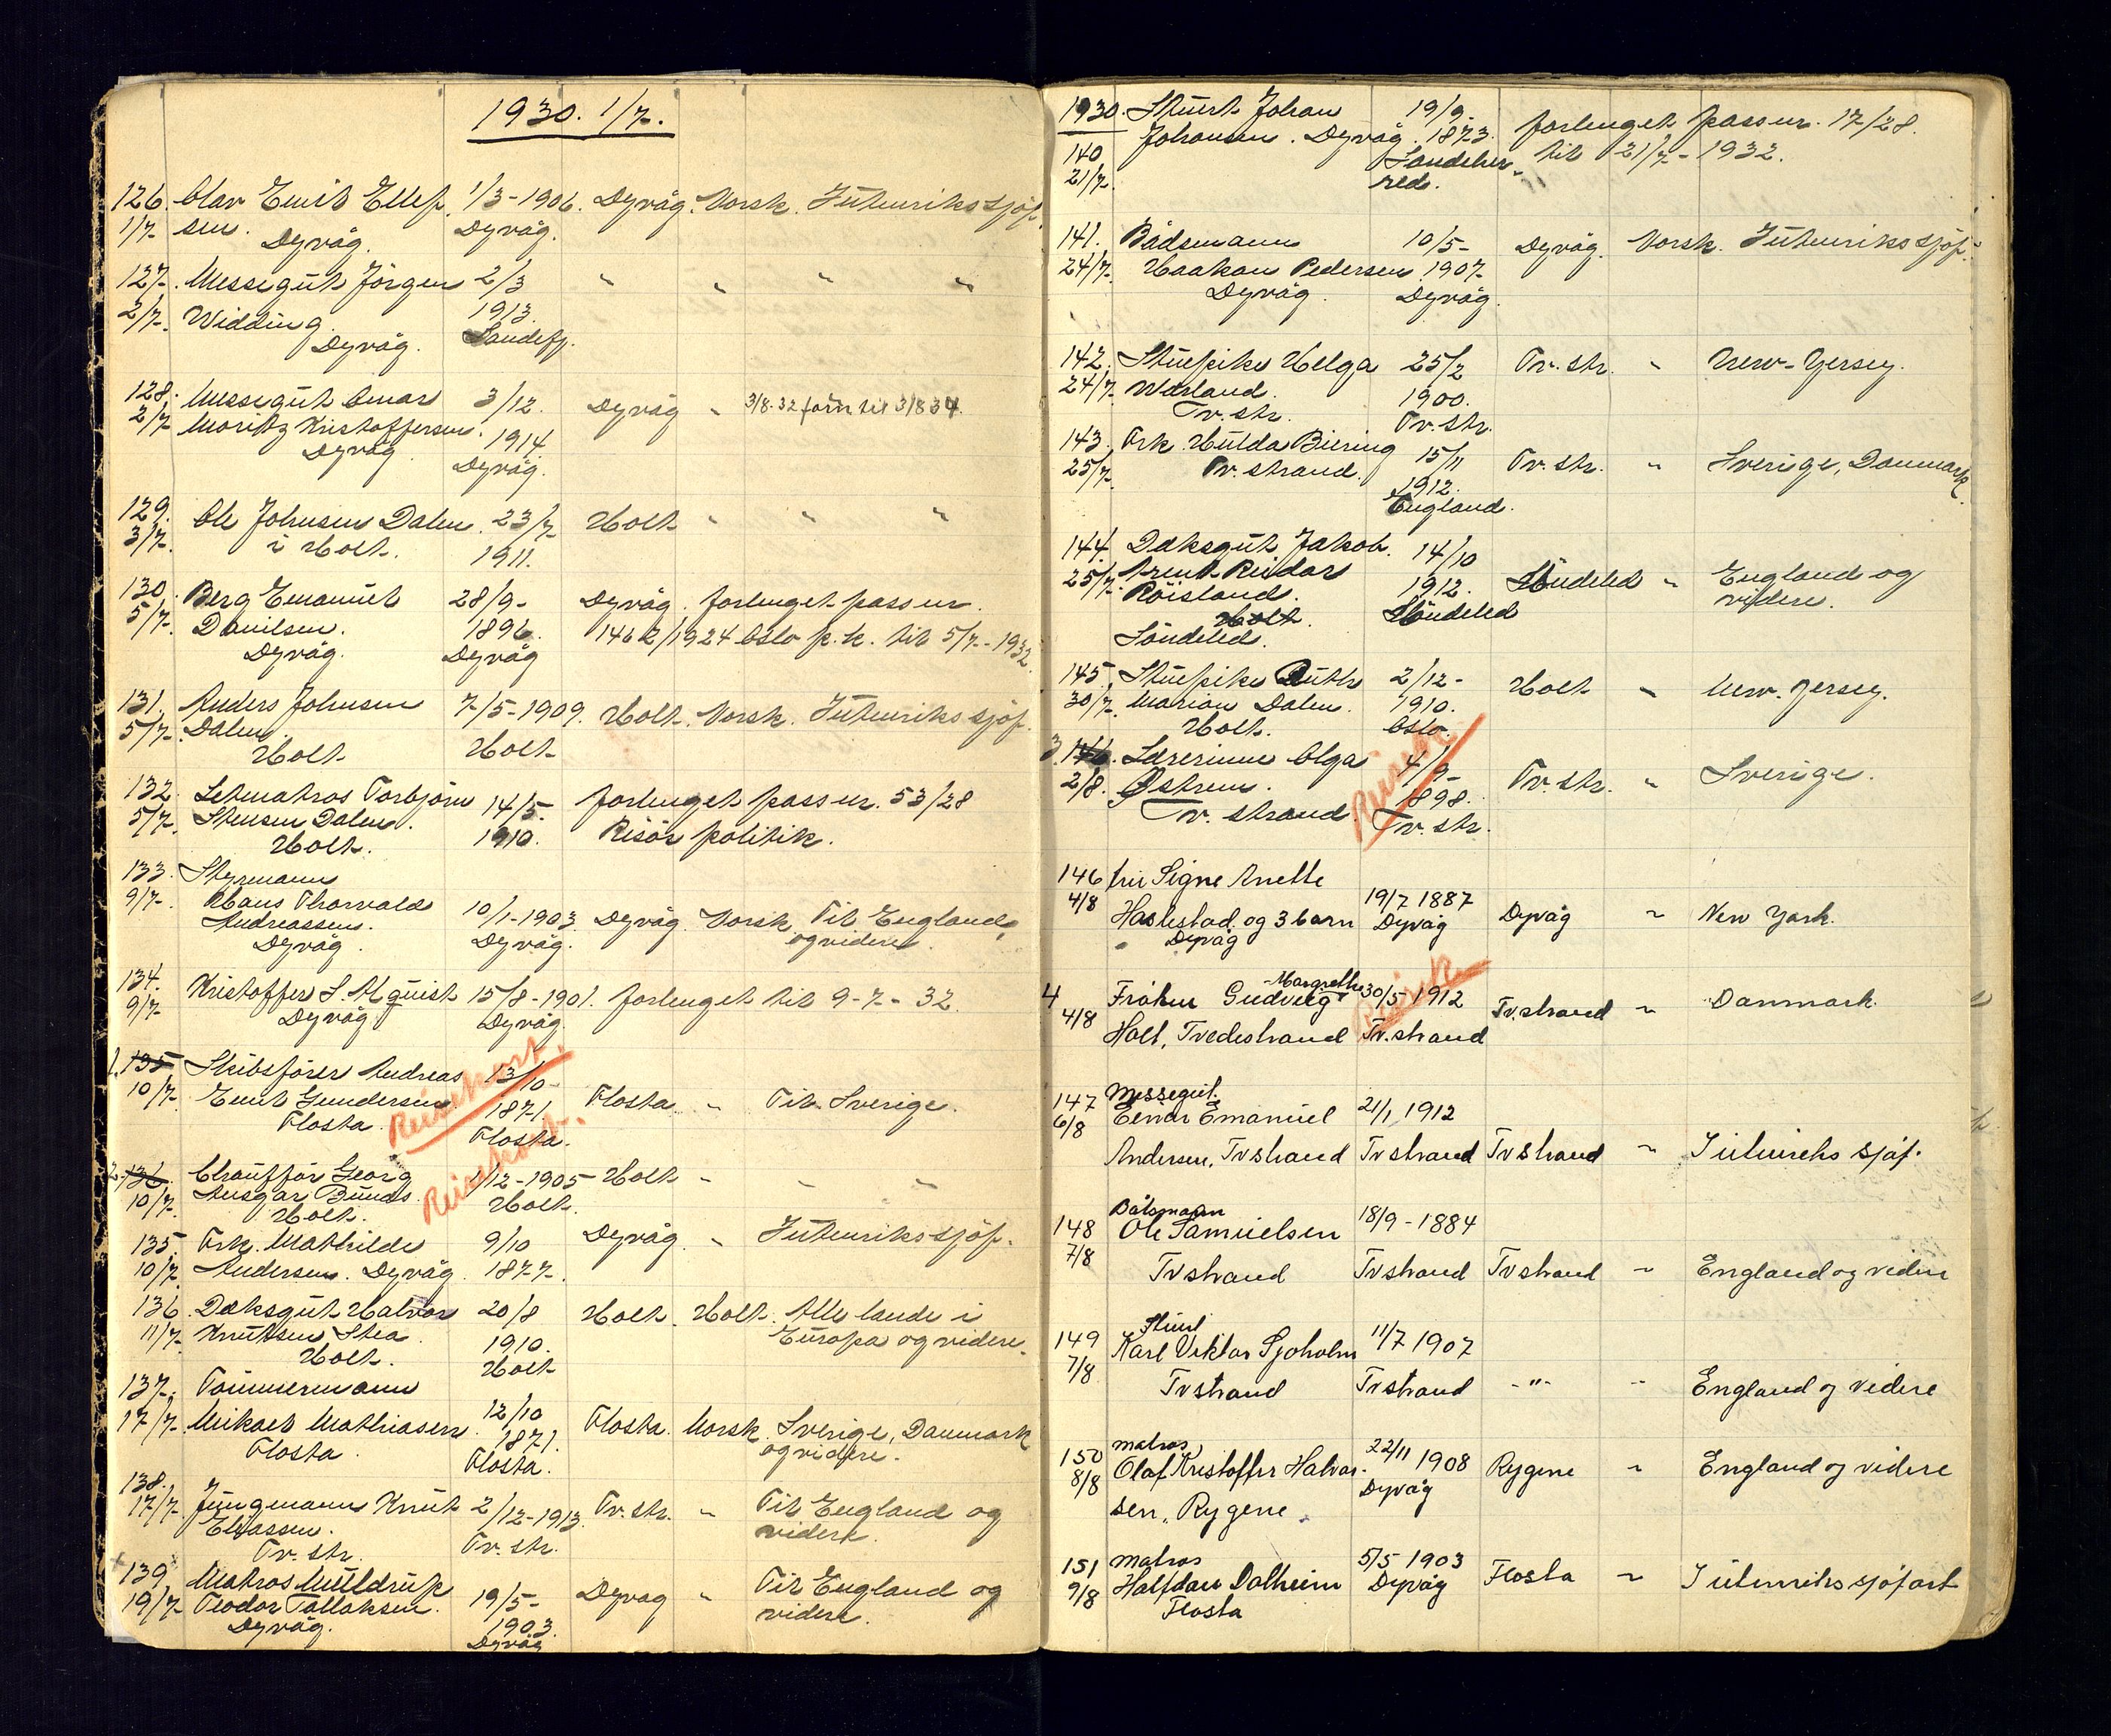 1930. 1/7.
126. Olav Emil Ellef- 1/3-1906. Dyvåg. Norsk. Utenrikssjöf.
1/7- sen. Dyvåg. Dyvåg.
127. Messegut Jörgen 2/3 " " " "
2/7. Widding. 1913.
Dyvåg. Sandefj.
128. Messegut Omar 3/12. Dyvåg " 3/8-32 forn til 3/8 34.
2/7- Moritz Kristoffersen. 1914.
Dyvåg Dyvåg.
129. Ole Johnsen Dalen. 23/7 Holt " " "
3/7. i Holt. 1911.
130. Berg Emanuel 28/9- Dyvåg. forlenget pass nr.
5/7. Danilsen. 1896. 1462/1924 Oslo p.k. til 5/7-1932.
Dyvåg. Dyvåg
131. Anders Johnsen 7/5-1909. Holt. Norsk. Utenrikssjöf.
5/7- Dalen.
Holt Holt
132. Letmatros Torbjörn 14/5- forlenget pass nr. 53/28
5/7. Stensen Dalen. 1910. Risör politik.
Holt.
133. Styrmann
9/7- Hans Thorvald 10/1-1903 Dyvåg Norsk Til England
Andreassen. Dyvåg. og videre.
Dyvåg.
134. Kristoffer S. Almquist 15/8-1901. forlenget til 9-7-32.
9/7- Dyvåg Dyvåg.
1. 135 Skibsförer Andreas 13/10-
10/7- Emil Gundersen 1871 Flosta " Til Sverige.
Flosta. Flosta.
Reisekort.
2. 136. Chaufför Georg 1/12-1905 Holt " " "
10/7. Ansgar Bunds. Holt.
Holt.
Reisekort.
135. Frk. Mathilde 9/10 Dyvåg. " Utenrikssjöf.
10/7. Andersen. Dyvåg. 1877.
136 Dæksgut Halvor 20/8 Holt. Holt. Alle lande i
11/7- Knutsen Stea. 1910. Europa og videre.
Holt. Holt
137. Tömmermann
17/7- Mikael Mathiasen 12/10 Flosta. Norsk. Sverige, Danmark
Flosta. 1871. og videre.
Flosta.
138.
17/7- Jungmann Knut 2/12-1913. Tv. str. " Til England og
Eliassen. Tv. str. videre.
Tv. str.
139 Matros Mulldrup
19/7- Teodor Tallaksen. 19/5- Dyvåg " Til England og
Dyvåg. 1903. videre.
Dyvåg
1930. Stuert Johan 19/9- forlenget pass nr. 17/28.
140 Johansen. Dyvåg. 1873. til 21/7-1932.
21/7. Söndeher-
red.
141. Bådsmann 10/5- Dyvåg. Norsk. Utenrikssjöf.
24/7. Haakon Pedersen 1907.
Dyvåg. Dyvåg.
142. Stuepike Helga 25/2 Tv. str. " New-Yersey.
24/7. Wærland. 1900.
Tv. str. Tv. str.
143. Frk. Hulda Biering 15/11 Tv. str. " Sverige, Danmark.
25/7. Tv. strand. 1912.
England.
144. Dæksgut Jakob 14/10
25/7. Arent Reidar 1912. Söndeled " England og
Röisland. Söndeled videre.
Holt.
Söndeled.
145. Stuepike Ruth 2/12- Holt " New. Jersey.
30/7. Marion Dalen. 1910.
Holt. Oslo.
3. 146. Lærerinne Olga 4/9- Tv. str. " Sverige.
2/8. Østrem. 1898.
Tv. strand. Tv. str.
Reisek
146 fru Signe Anette
4/8 Haslestad og 3 barn 19/7 1887 Dyvåg " New York.
Dyvåg Dyvåg
4 Fröken Gudveig Margrethe 30/5 1912 Tv. strand " Danmark.
4/8 Holt, Tvedestrand Tv. strand
Reisek
147 Messegut.
6/8 Einar Emanuel 21/1 1912
Andersen, Tvstrand Tvstrand Tvstrand " Utenriks sjöf.
Båtsmann
148 Ole Samuelsen 18/9-1884
7/8 Tvstrand Tvstrand Tvstrand " England og videre
Stuert
149 Karl Viktor Sjoholm 11/7 1907
7/8 Tvstrand Tvstrand -"- " England og videre
150 matros
8/8 Olaf Kristoffer Halvor- 22/11 1908 Rygene " England og videre
sen, Rygene. Dyvåg
151 matros 5/5 1903
9/8 Halfdan Dalheim Dyvåg Flosta " Utenriks sjöfart
Flosta